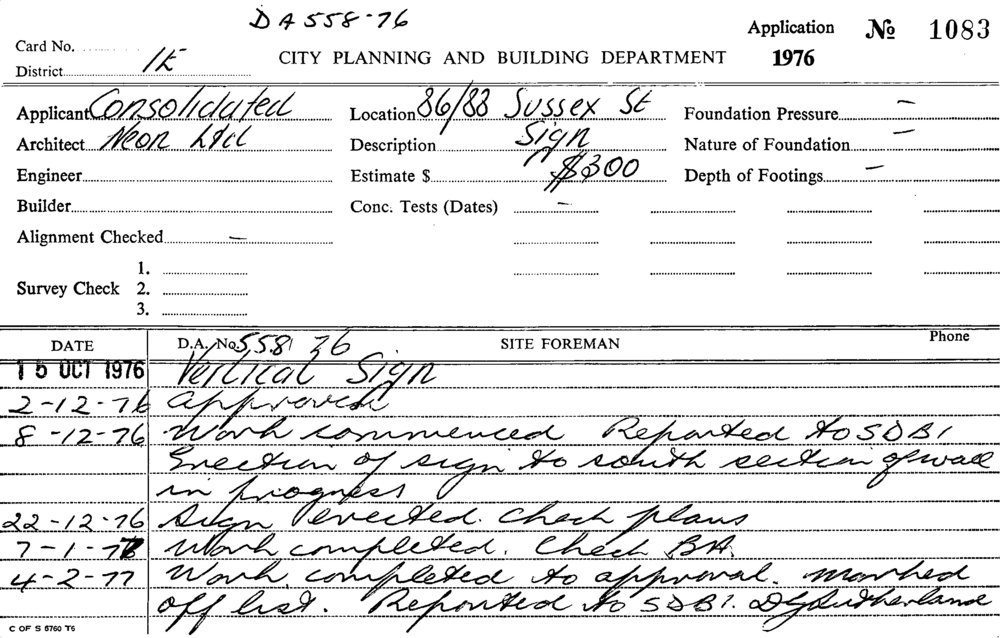 DA 558-76
Application № 1083
Card No.
District 1E
CITY PLANNING AND BUILDING DEPARTMENT 1976
Applicant Consolidated Location 86/88 Sussex St Foundation Pressure –
Architect Neon Ltd Description Sign Nature of Foundation –
Engineer Estimate $ $300 Depth of Footings –
Builder Conc. Tests (Dates) –
Alignment Checked –
1.
Survey Check 2.
3.
DATE D.A. No. 558 76 SITE FOREMAN Phone
15 OCT 1976 Vertical Sign
2-12-76 Approved
8-12-76 Work commenced Reported to SDBI
Erection of sign to south section of wall
in progress
22-12-76 Sign erected. Check plans
7-1-77 Work completed. Check BA.
4-2-77 Work completed to approval. Marked
off list. Reported to SDBI. DG Sutherland
C OF S 5760 T6